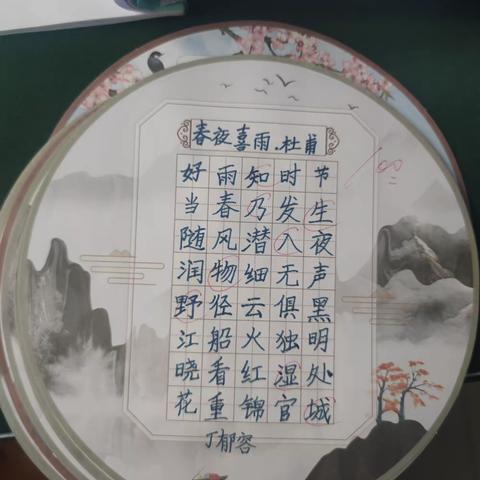 春夜喜雨.杜甫
好雨知时节
当春乃发生
随风潜入夜
润物细无声
野径云俱黑
江船火独明
晓看红湿处
花重锦官城
丁郁容
100